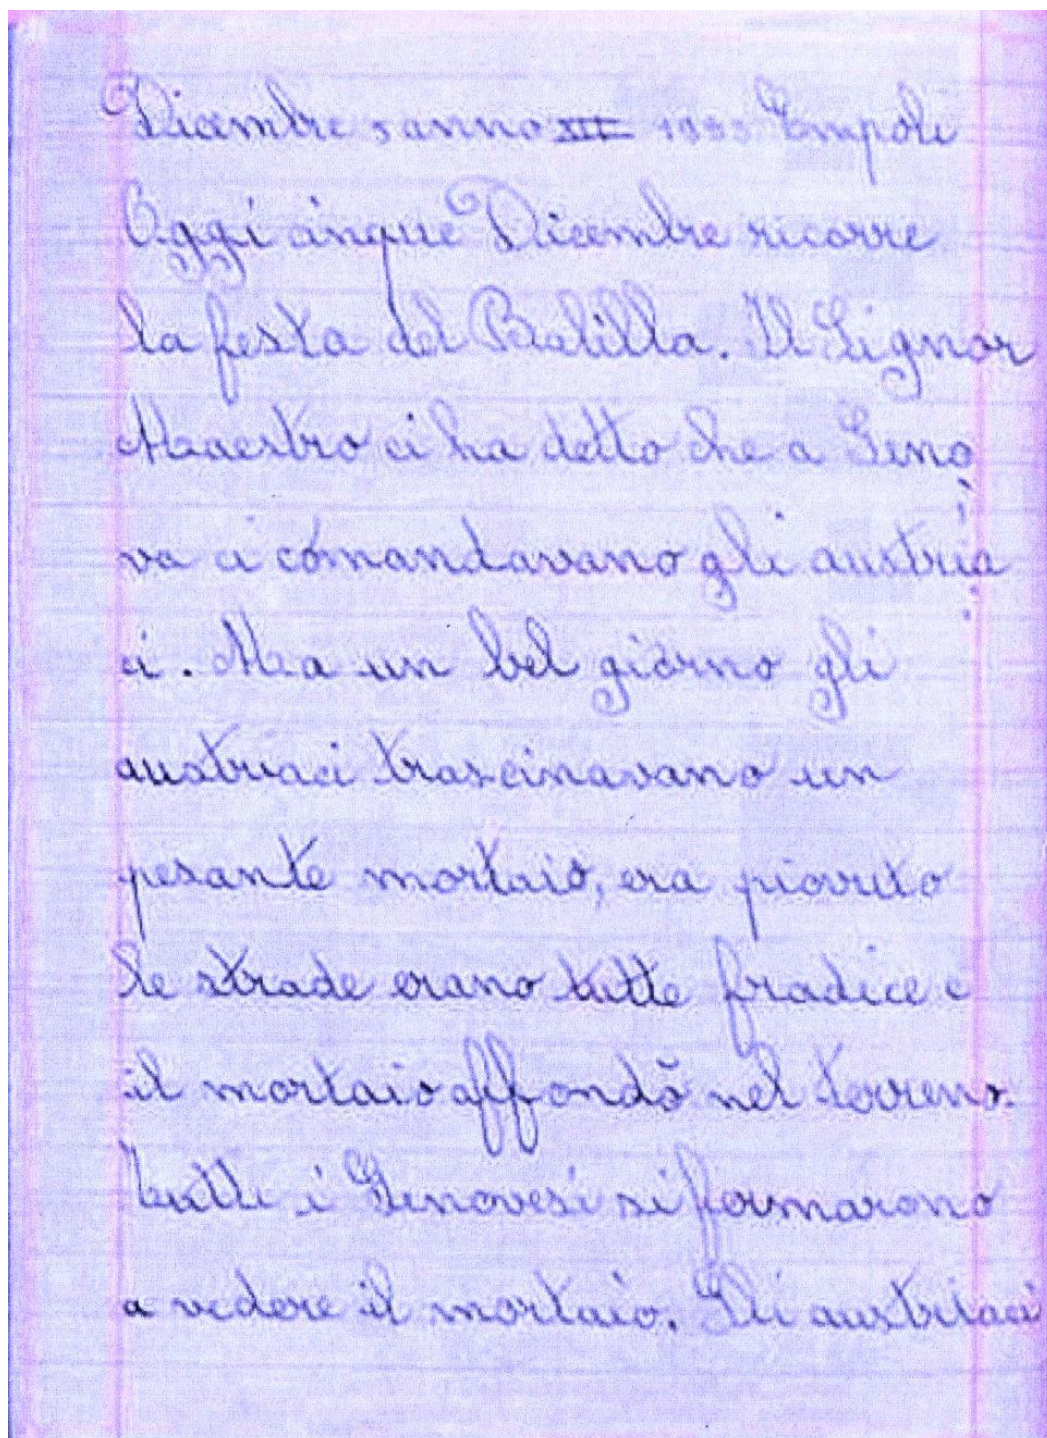 Dicembre 5 anno XII 1933 Empoli
Oggi cinque Dicembre ricorre
la festa del Balilla. Il Signor
Maestro ci ha detto che a Geno
va ci comandavano gli austria
ci. Ma un bel giorno gli
austriaci trascinavano un
pesante mortaio, era piovuto
le strade erano tutte fradice e
il mortaio affondò nel terreno.
Tutti i Genovesi si formarono
a vedere il mortaio. Gli austriaci